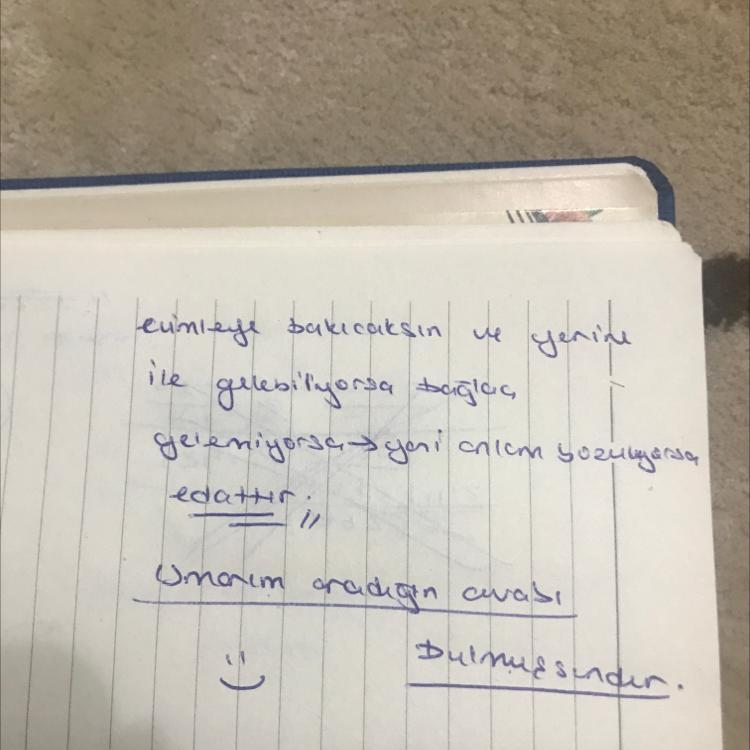 cümleye bakıcaksın ve yerine
ile gelebiliyorsa bağlaç
gelemiyorsa → yani anlam bozuluyorsa
edattır.
Umarım aradığın cevabı
Bulmuşsundur.